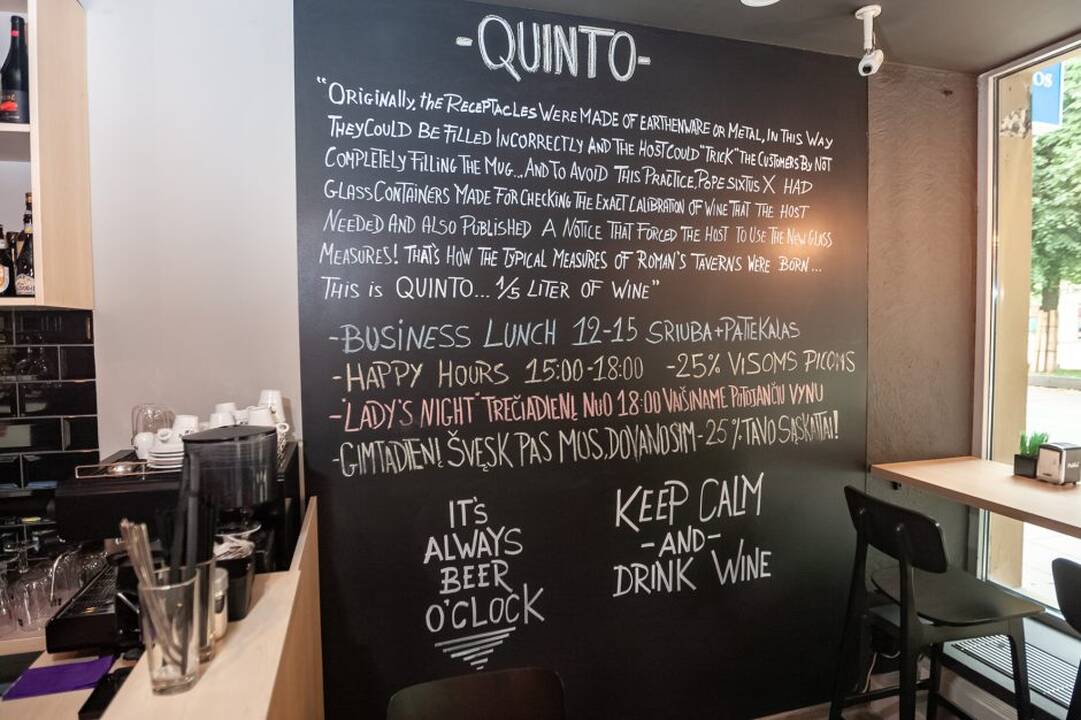 -QUINTO-
"ORIGINALLY, the RECEPTACLES WERE MADE OF EARTHENWARE OR METAL, IN THIS WAY
THEY COULD BE FILLED INCORRECTLY AND THE HOST COULD "TRICK" THE CUSTOMERS BY NOT
COMPLETELY FILLING THE MUG... AND TO AVOID THIS PRACTICE, POPE SIXTUS X HAD
GLASS CONTAINERS MADE FOR CHECKING THE EXACT CALIBRATION OF WINE THAT THE HOST
NEEDED AND ALSO PUBLISHED A NOTICE THAT FORCED THE HOST TO USE THE NEW GLASS
MEASURES! THAT'S HOW THE TYPICAL MEASURES OF ROMAN'S TAVERNS WERE BORN...
THIS IS QUINTO... 1/5 LITER OF WINE"
-BUSINESS LUNCH 12-15 SRIUBA+PATIEKALAS
-HAPPY HOURS 15:00-18:00 -25% VISOMS PICOMS
-"LADY'S NIGHT" TREČIADIENĮ NUO 18:00 VAIŠINAME PUTOJANČIU VYNU
-GIMTADIENĮ ŠVĘSK PAS MUS, DOVANOSIM -25% TAVO SĄSKAITAI!
IT'S
ALWAYS
BEER
O'CLOCK
KEEP CALM
-AND-
DRINK WINE